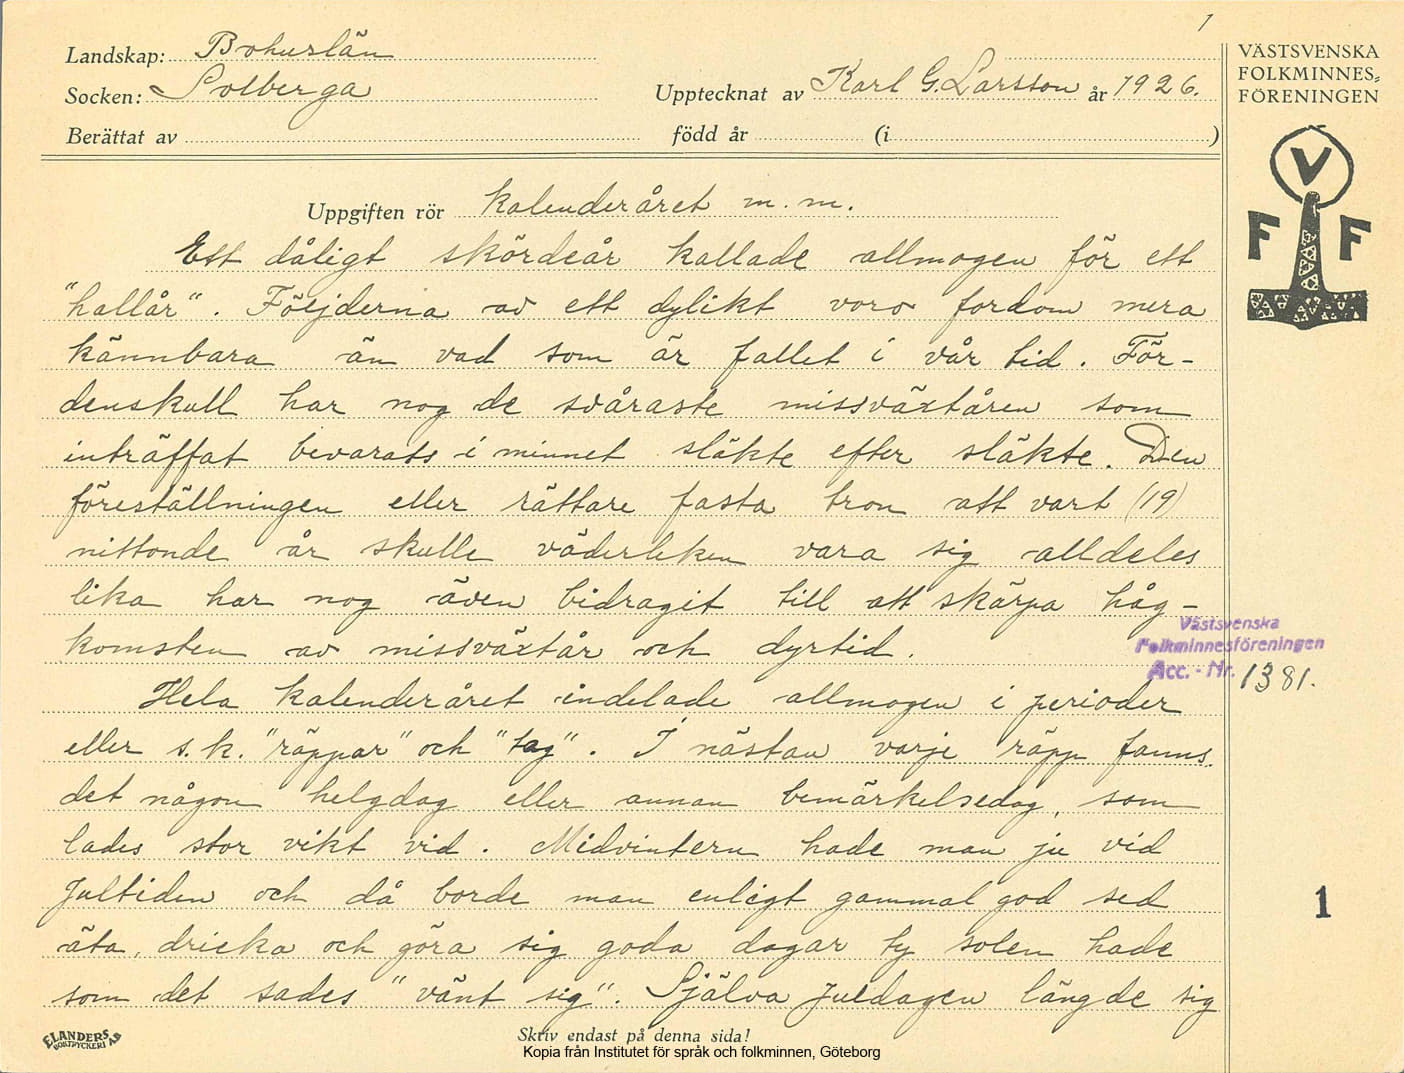 1
Landskap: Bohuslän
Socken: Solberga
Upptecknat av Karl G. Larsson år 1926.
Berättat av född år (i )
VÄSTSVENSKA
FOLKMINNES-
FÖRENINGEN
V
F F
Uppgiften rör kalenderåret m.m.
Ett dåligt skördeår kallade allmogen för ett
"hallår". Följderna av ett dylikt voro fordom mera
kännbara än vad som är fallet i vår tid. För-
denskull har nog de svåraste missväxtåren som
inträffat bevarats i minnet släkte efter släkte. Den
föreställningen eller rättare fasta tron att vart (19)
nittonde år skulle väderleken vara sig alldeles
lika har nog även bidragit till att skärpa håg-
komsten av missväxtår och dyrtid.
Västsvenska
Folkminnesföreningen
Acc. - Nr. 1381.
Hela kalenderåret indelade allmogen i perioder
eller s.k. "räppar" och "tag". I nästan varje räpp fanns
det någon helgdag eller annan bemärkelsedag, som
lades stor vikt vid. Midvintern hade man ju vid
Jultiden och då borde man enligt gammal god sed
äta, dricka och göra sig goda dagar ty solen hade
som det sades "vänt sig". Själva Juldagen längde sig
1
ELANDERS
BOKTRYCKERI AB
Skriv endast på denna sida!
Kopia från Institutet för språk och folkminnen, Göteborg